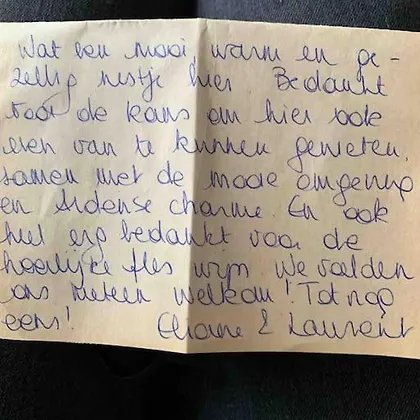 Wat een mooi, warm en ge-
zellig nestje hier Bedankt
voor de kans om hier ook
even van te kunnen genieten,
samen met de mooie omgeving
en Ardense charme En ook
heel erg bedankt voor de
heerlijke fles wijn we voelden
ons meteen welkom! Tot nog
eens! Eliane & Laurent